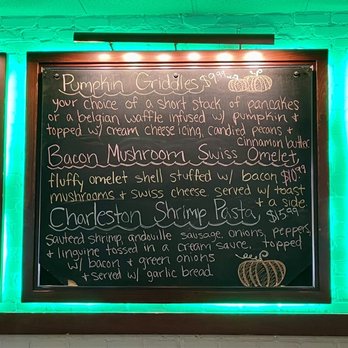 Pumpkin Griddles, $9.99
your choice of a short stack of pancakes
or a belgian waffle infused w/ pumpkin &
topped w/ cream cheese icing, candied pecans &
cinnamon butter
Bacon Mushroom Swiss Omelet,
fluffy omelet shell stuffed w/ bacon $10.99
mushrooms & swiss cheese served w/ toast
& a side
Charleston Shrimp Pasta, $15.99
sauteed shrimp, andouille sausage, onions, peppers,
& linguine tossed in a cream sauce, topped
w/ bacon & green onions
& served w/ garlic bread.